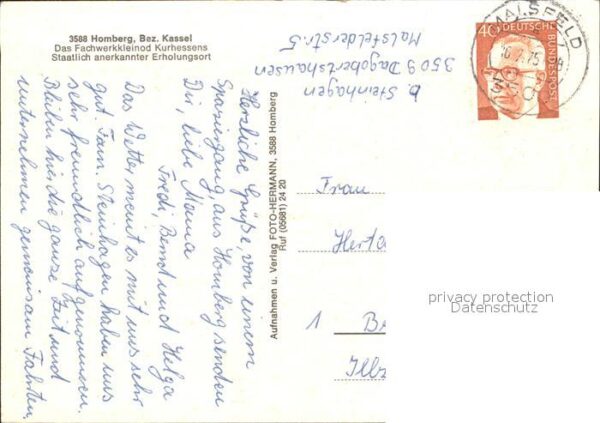 3588 Homberg, Bez. Kassel
Das Fachwerkkleinod Kurhessens
Staatlich anerkannter Erholungsort
Herzliche Grüße, von einem
Spaziergang, aus Homberg senden
Dir, liebe Mama
Fredi, Bernd und Helga
Das Wetter meint es mit uns sehr
gut. Fam. Steinhagen haben uns
sehr freundlich aufgenommen.
Bleiben hier die ganze Zeit und
unternehmen gemeinsam Fahrten.
Aufnahmen u. Verlag FOTO-HERMANN, 3588 Homberg
Ruf (05681) 24 20
b. Steinhagen
3509 Dagobertshausen
Malsfelderstr. 5
MALSFELD
40
DEUTSCHE BUNDESPOST
Frau
Herta
1 B
Ilz
privacy protection
Datenschutz